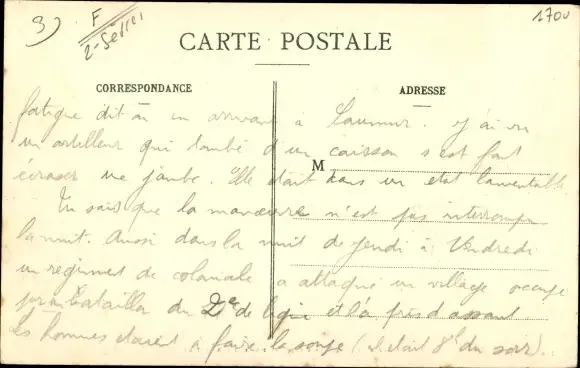 3) F
2-Sèvres
1700
CARTE POSTALE
CORRESPONDANCE
ADRESSE
M
fatigue dit on en arrivant à Saumur. J'ai vu
un artilleur qui tombé d'un caisson s'est fait
écraser une jambe. Elle était dans un état lamentable
Tu sais que la manœuvre n'est pas interrompue
la nuit. Aussi dans la nuit de jeudi à Vendredi
un régiment de coloniale a attaqué un village occupé
par un bataillon du 2e de ligne et l'a pris d'assaut.
Les hommes étaient à faire la soupe (il était 8h du soir).